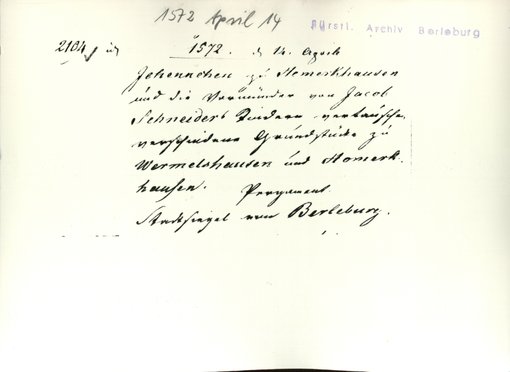 1572 April 14
Fürstl. Archiv Berleburg
2104
1572. d. 14. April
Johennchen zu Homerkhausen
und die Vormünder von Jacob
Schneiders Kindern vertausche
verschiedene Grundstücke zu
Wermelshausen und Homerk-
hausen. Pergament
Stadtsiegel von Berleburg.